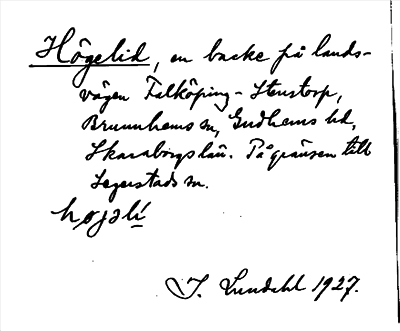 Högelid, en backe på lands-
vägen Falköping - Stenstorp,
Brunnhems sn, Gudhems hd,
Skaraborgs län. På gränsen till
Segerstads sn.
høgəli
I. Lundahl 1927.